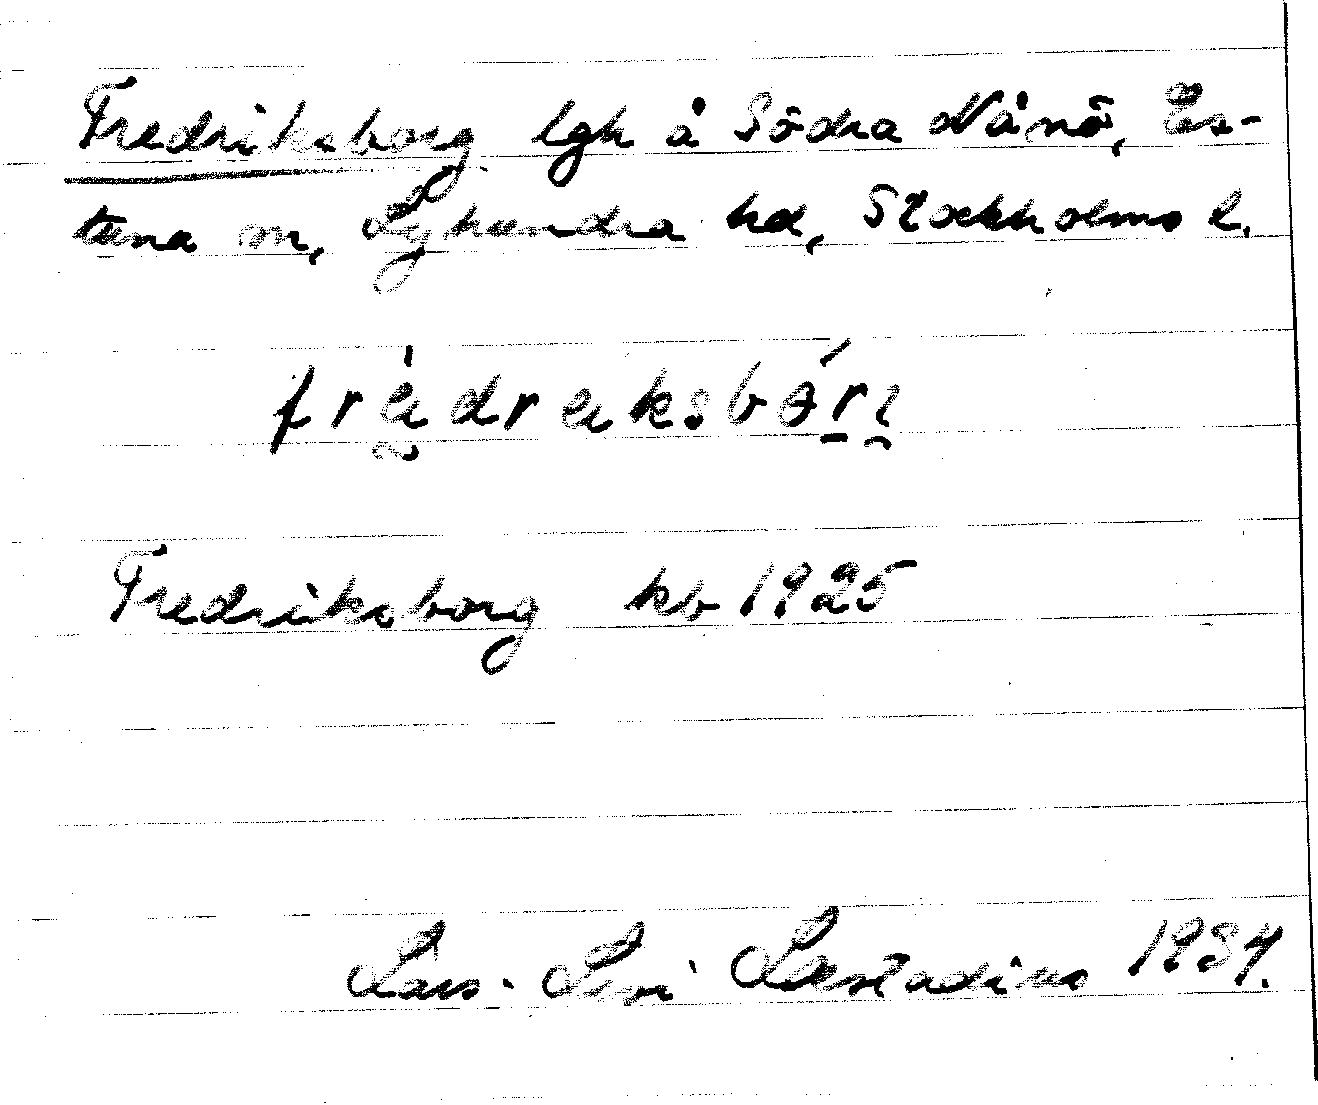 Fredriksborg lgh å Södra Nånö, Es-
tuna sn, Lyhundra hd, Stockholms l.
Fredriksborg kb 1925
Lars-Levi Læstadius 1934.